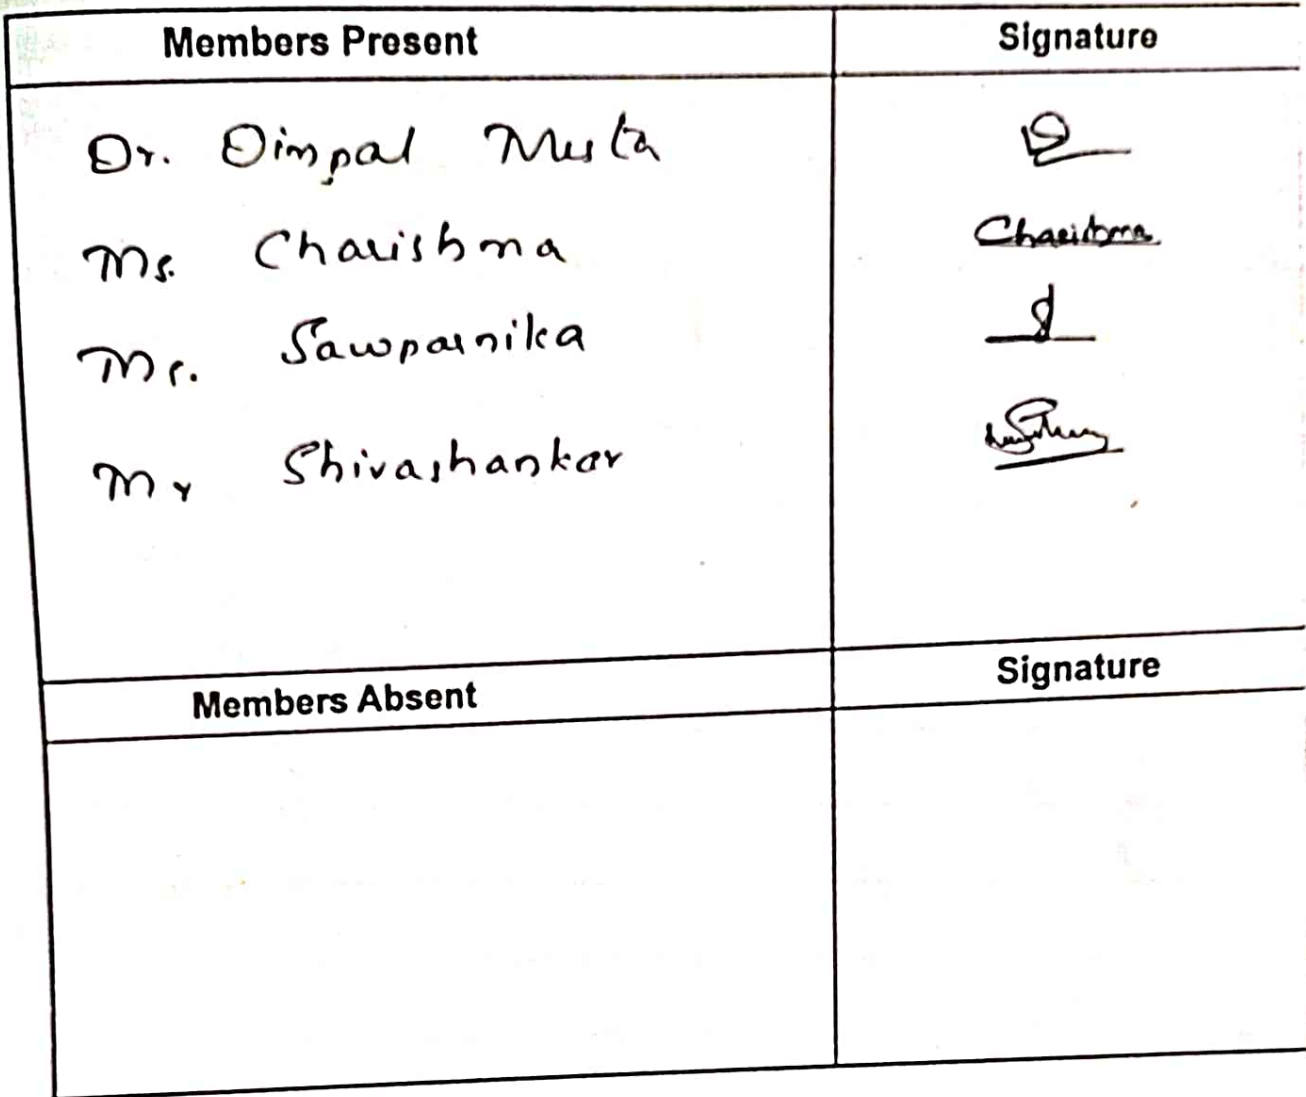 Members Present Signature
Dr. Dimpal Musta
Ms. Charishma Charishma
Ms. Sawparnika
Mr Shivashankar
Members Absent Signature